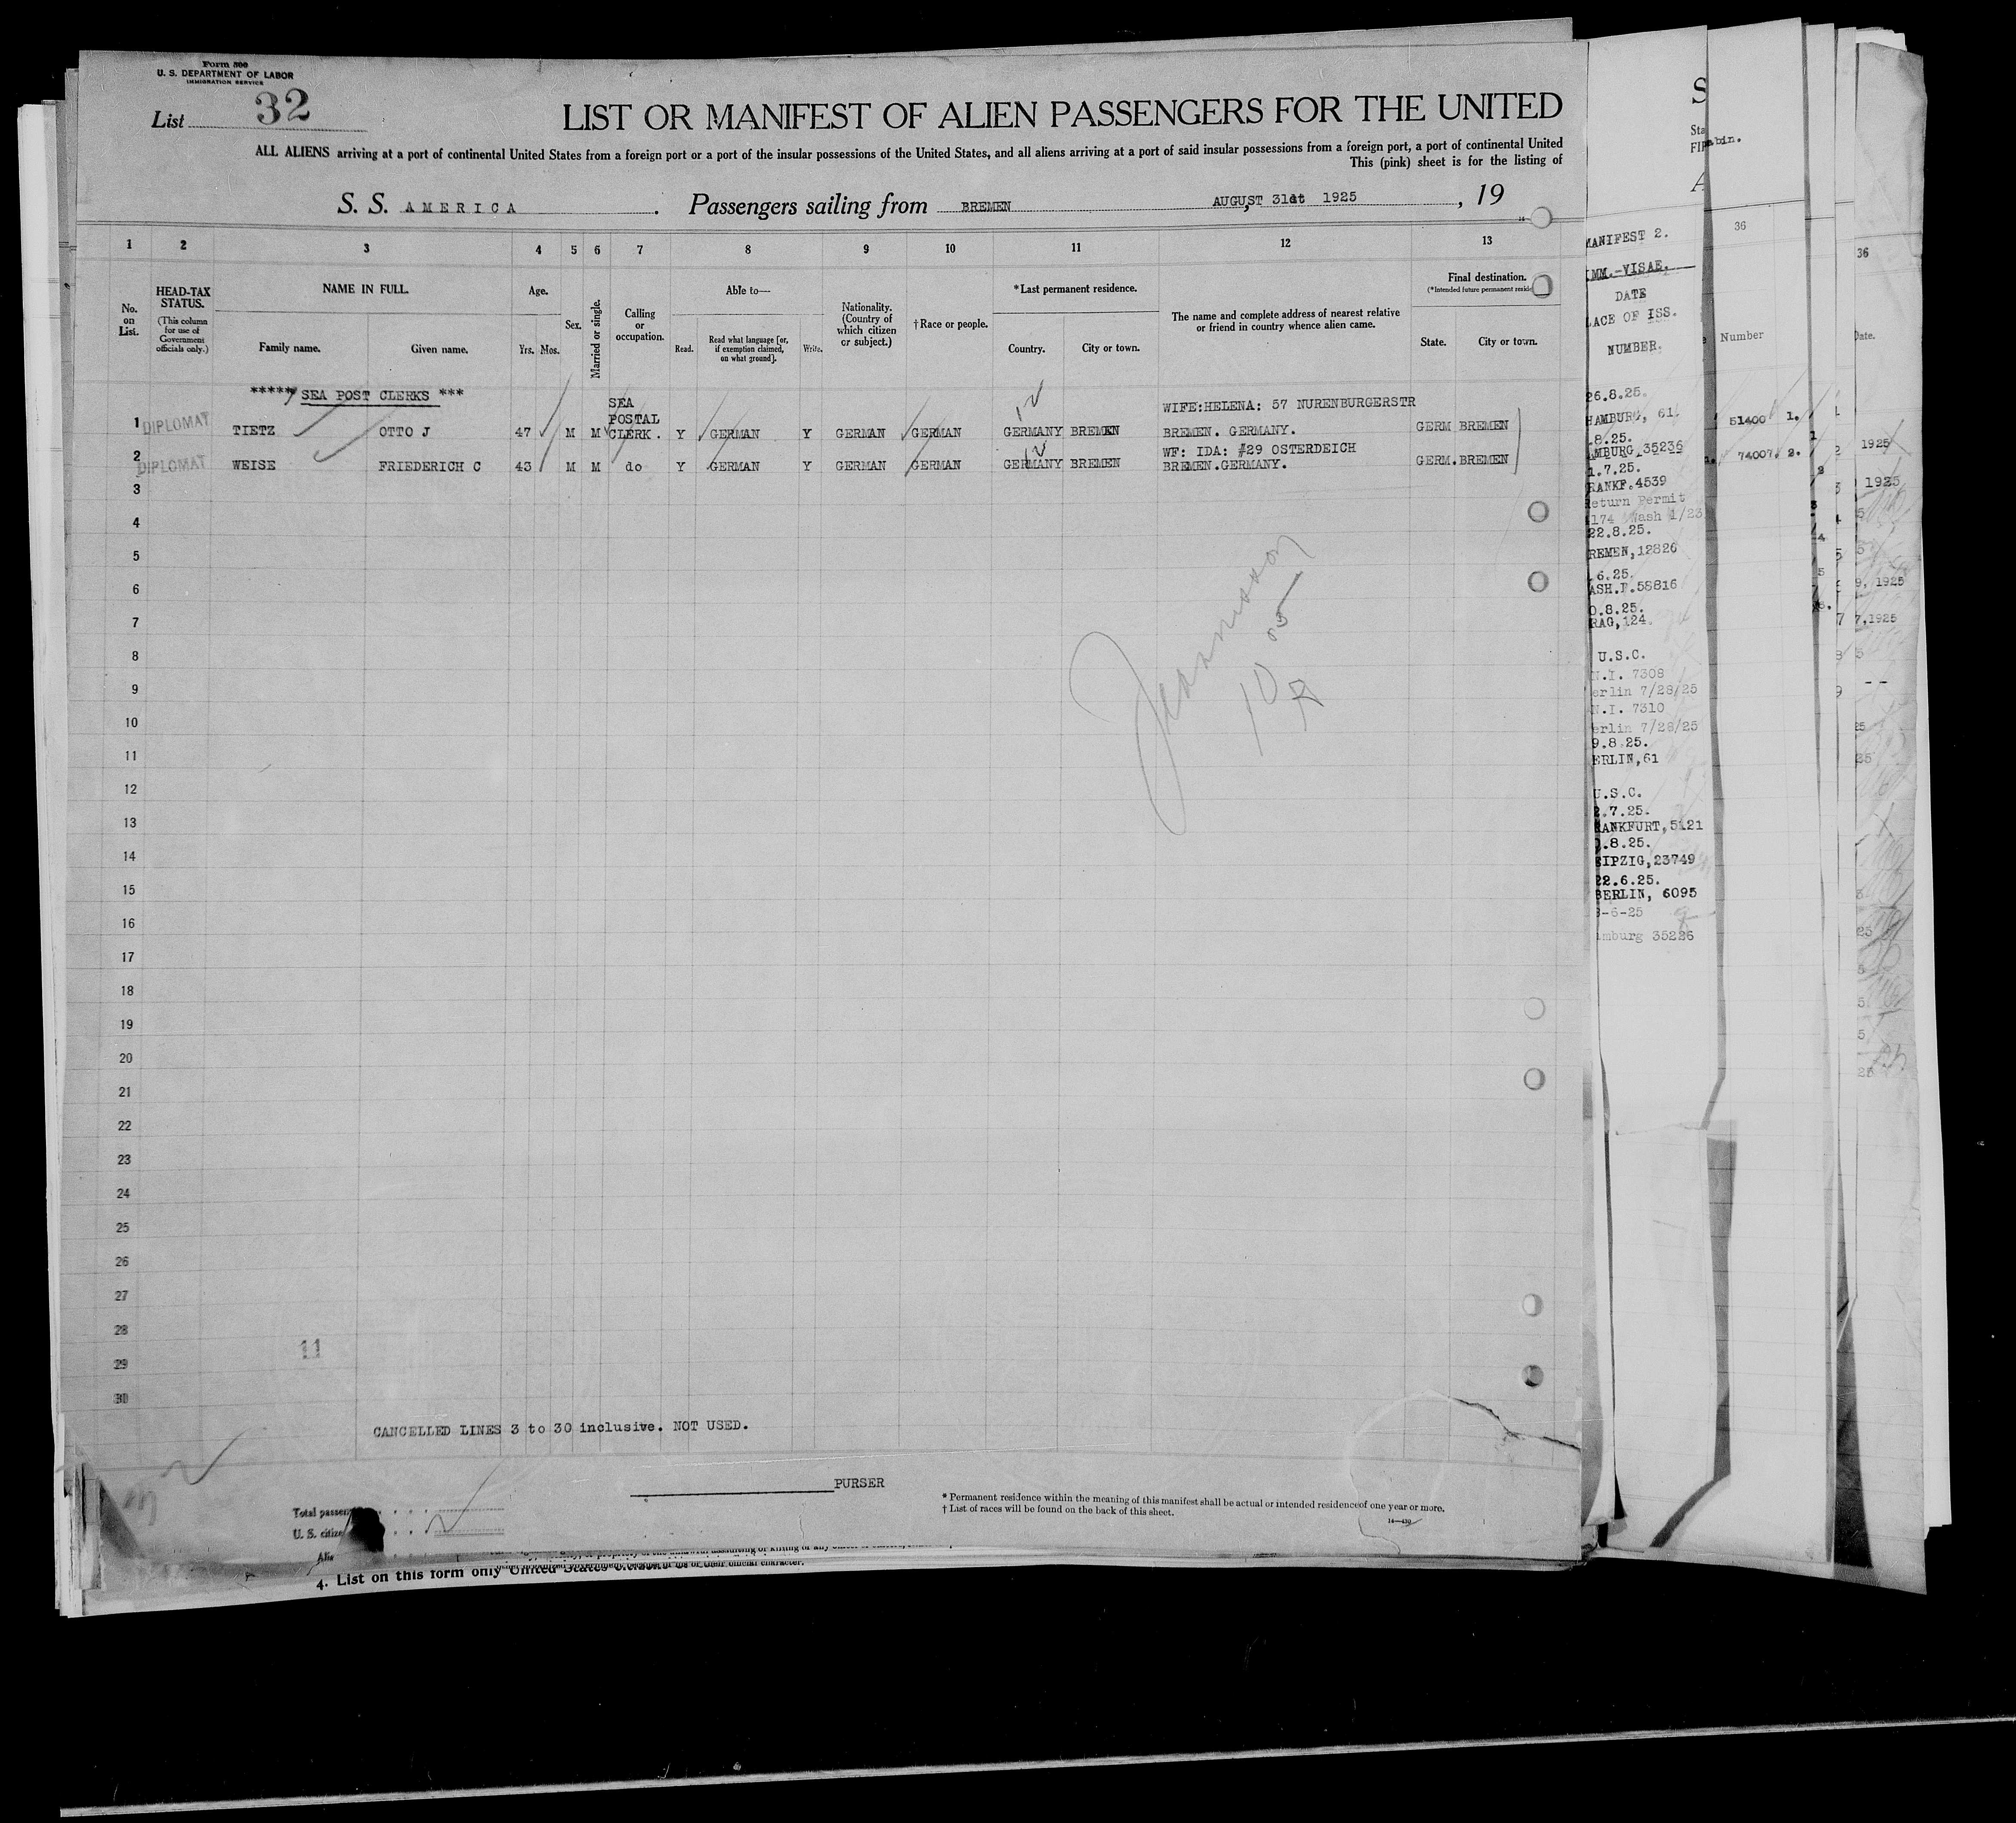 Form 500
U. S. DEPARTMENT OF LABOR
IMMIGRATION SERVICE
List 32
LIST OR MANIFEST OF ALIEN PASSENGERS FOR THE UNITED
ALL ALIENS arriving at a port of continental United States from a foreign port or a port of the insular possessions of the United States, and all aliens arriving at a port of said insular possessions from a foreign port, a port of continental United
This (pink) sheet is for the listing of
S. S. AMERICA . Passengers sailing from BREMEN AUGUST 31st 1925 , 19
1 2 3 4 5 6 7 8 9 10 11 12 13
No. on List.
HEAD-TAX STATUS.
(This column for use of Government officials only.)
NAME IN FULL.
Family name. Given name.
Age.
Yrs. Mos.
Sex.
Married or single.
Calling or occupation.
Able to—
Read. Read what language [or, if exemption claimed, on what ground]. Write.
Nationality. (Country of which citizen or subject.)
†Race or people.
*Last permanent residence.
Country. City or town.
The name and complete address of nearest relative or friend in country whence alien came.
Final destination.
(*Intended future permanent
State. City or town.
***** SEA POST CLERKS ***
1 DIPLOMAT TIETZ OTTO J 47 M M SEA POSTAL CLERK. Y GERMAN Y GERMAN GERMAN GERMANY BREMEN WIFE:HELENA: 57 NURENBURGERSTR BREMEN. GERMANY. GERM BREMEN
2 DIPLOMAT WEISE FRIEDERICH C 43 M M do Y GERMAN Y GERMAN GERMAN GERMANY BREMEN WF: IDA: #29 OSTERDEICH BREMEN.GERMANY. GERM.BREMEN
3
4
5
6
7
8
9
10
11
12
13
14
15
16
17
18
19
20
21
22
23
24
25
26
27
28
29
30
11
CANCELLED LINES 3 to 30 inclusive. NOT USED.
PURSER
Total
U. S.
* Permanent residence within the meaning of this manifest shall be actual or intended residence of one year or more.
† List of races will be found on the back of this sheet.
4. List on this form only United States citizens
MANIFEST 2.
IMM.-VISAE.
DATE
PLACE OF ISS.
NUMBER.
26.8.25.
HAMBURG, 61
.8.25.
AMBURG,35236
1.7.25.
RANKF.4539
eturn Permit
174 Wash 1/23
22.8.25.
REMEN,12826
6.25.
ASH.P.58816
0.8.25.
RAG,124
U.S.C.
N.I. 7308
erlin 7/28/25
N.I. 7310
erlin 7/28/25
9.8.25.
ERLIN,61
U.S.C.
2.7.25.
RANKFURT,5121
.8.25.
EIPZIG,23749
22.6.25.
BERLIN, 6095
-6-25
mburg 35226
36
Number
51400 1.
74007. 2.
36
Date.
1925
1925
9, 1925
7,1925